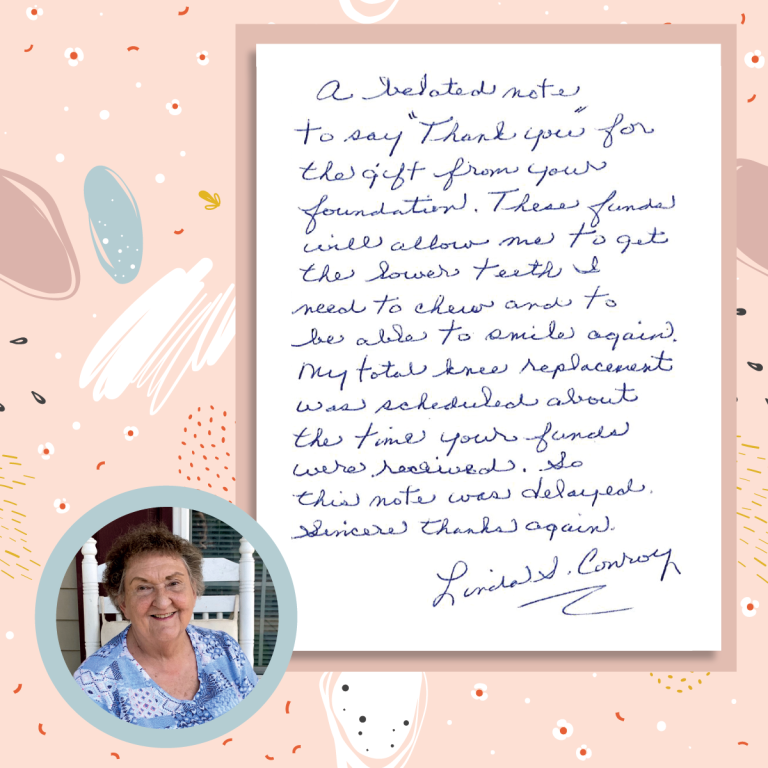 A belated note
to say "Thank you" for
the gift from your
foundation. These funds
will allow me to get
the lower teeth I
need to chew and to
be able to smile again.
My total knee replacement
was scheduled about
the time your funds
were received. So
this note was delayed.
Sincere thanks again.
Linda S. Conroy